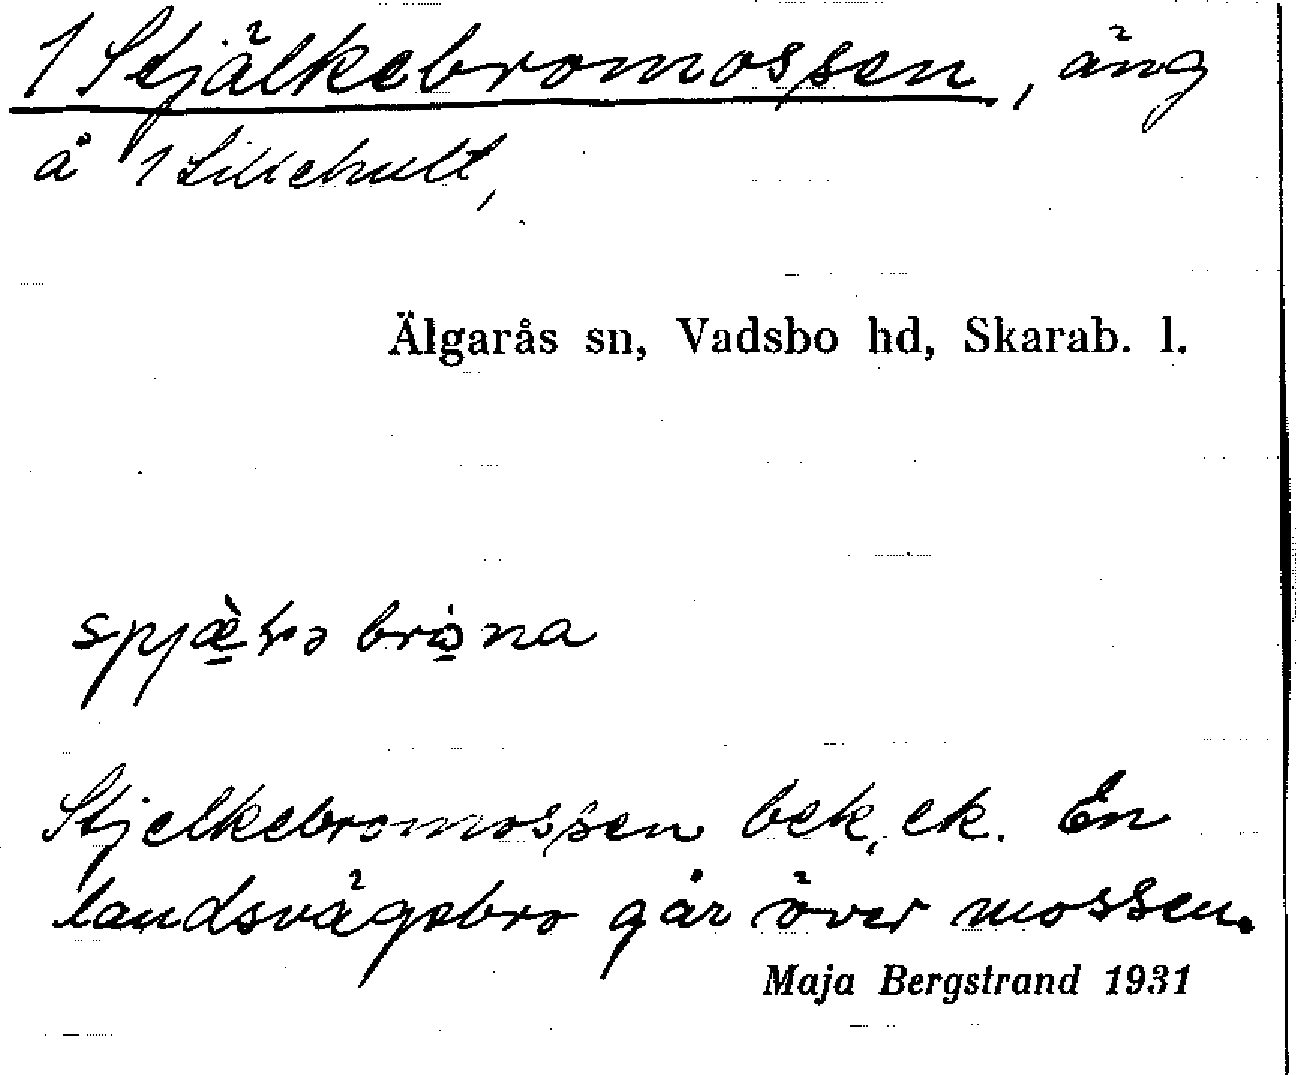 1 Stjälkebromossen, äng
å 1 Lillehult,
Älgarås sn, Vadsbo hd, Skarab. l.
Stjelkebromossen bek, ek. En
landsvägsbro går över mossen.
Maja Bergstrand 1931